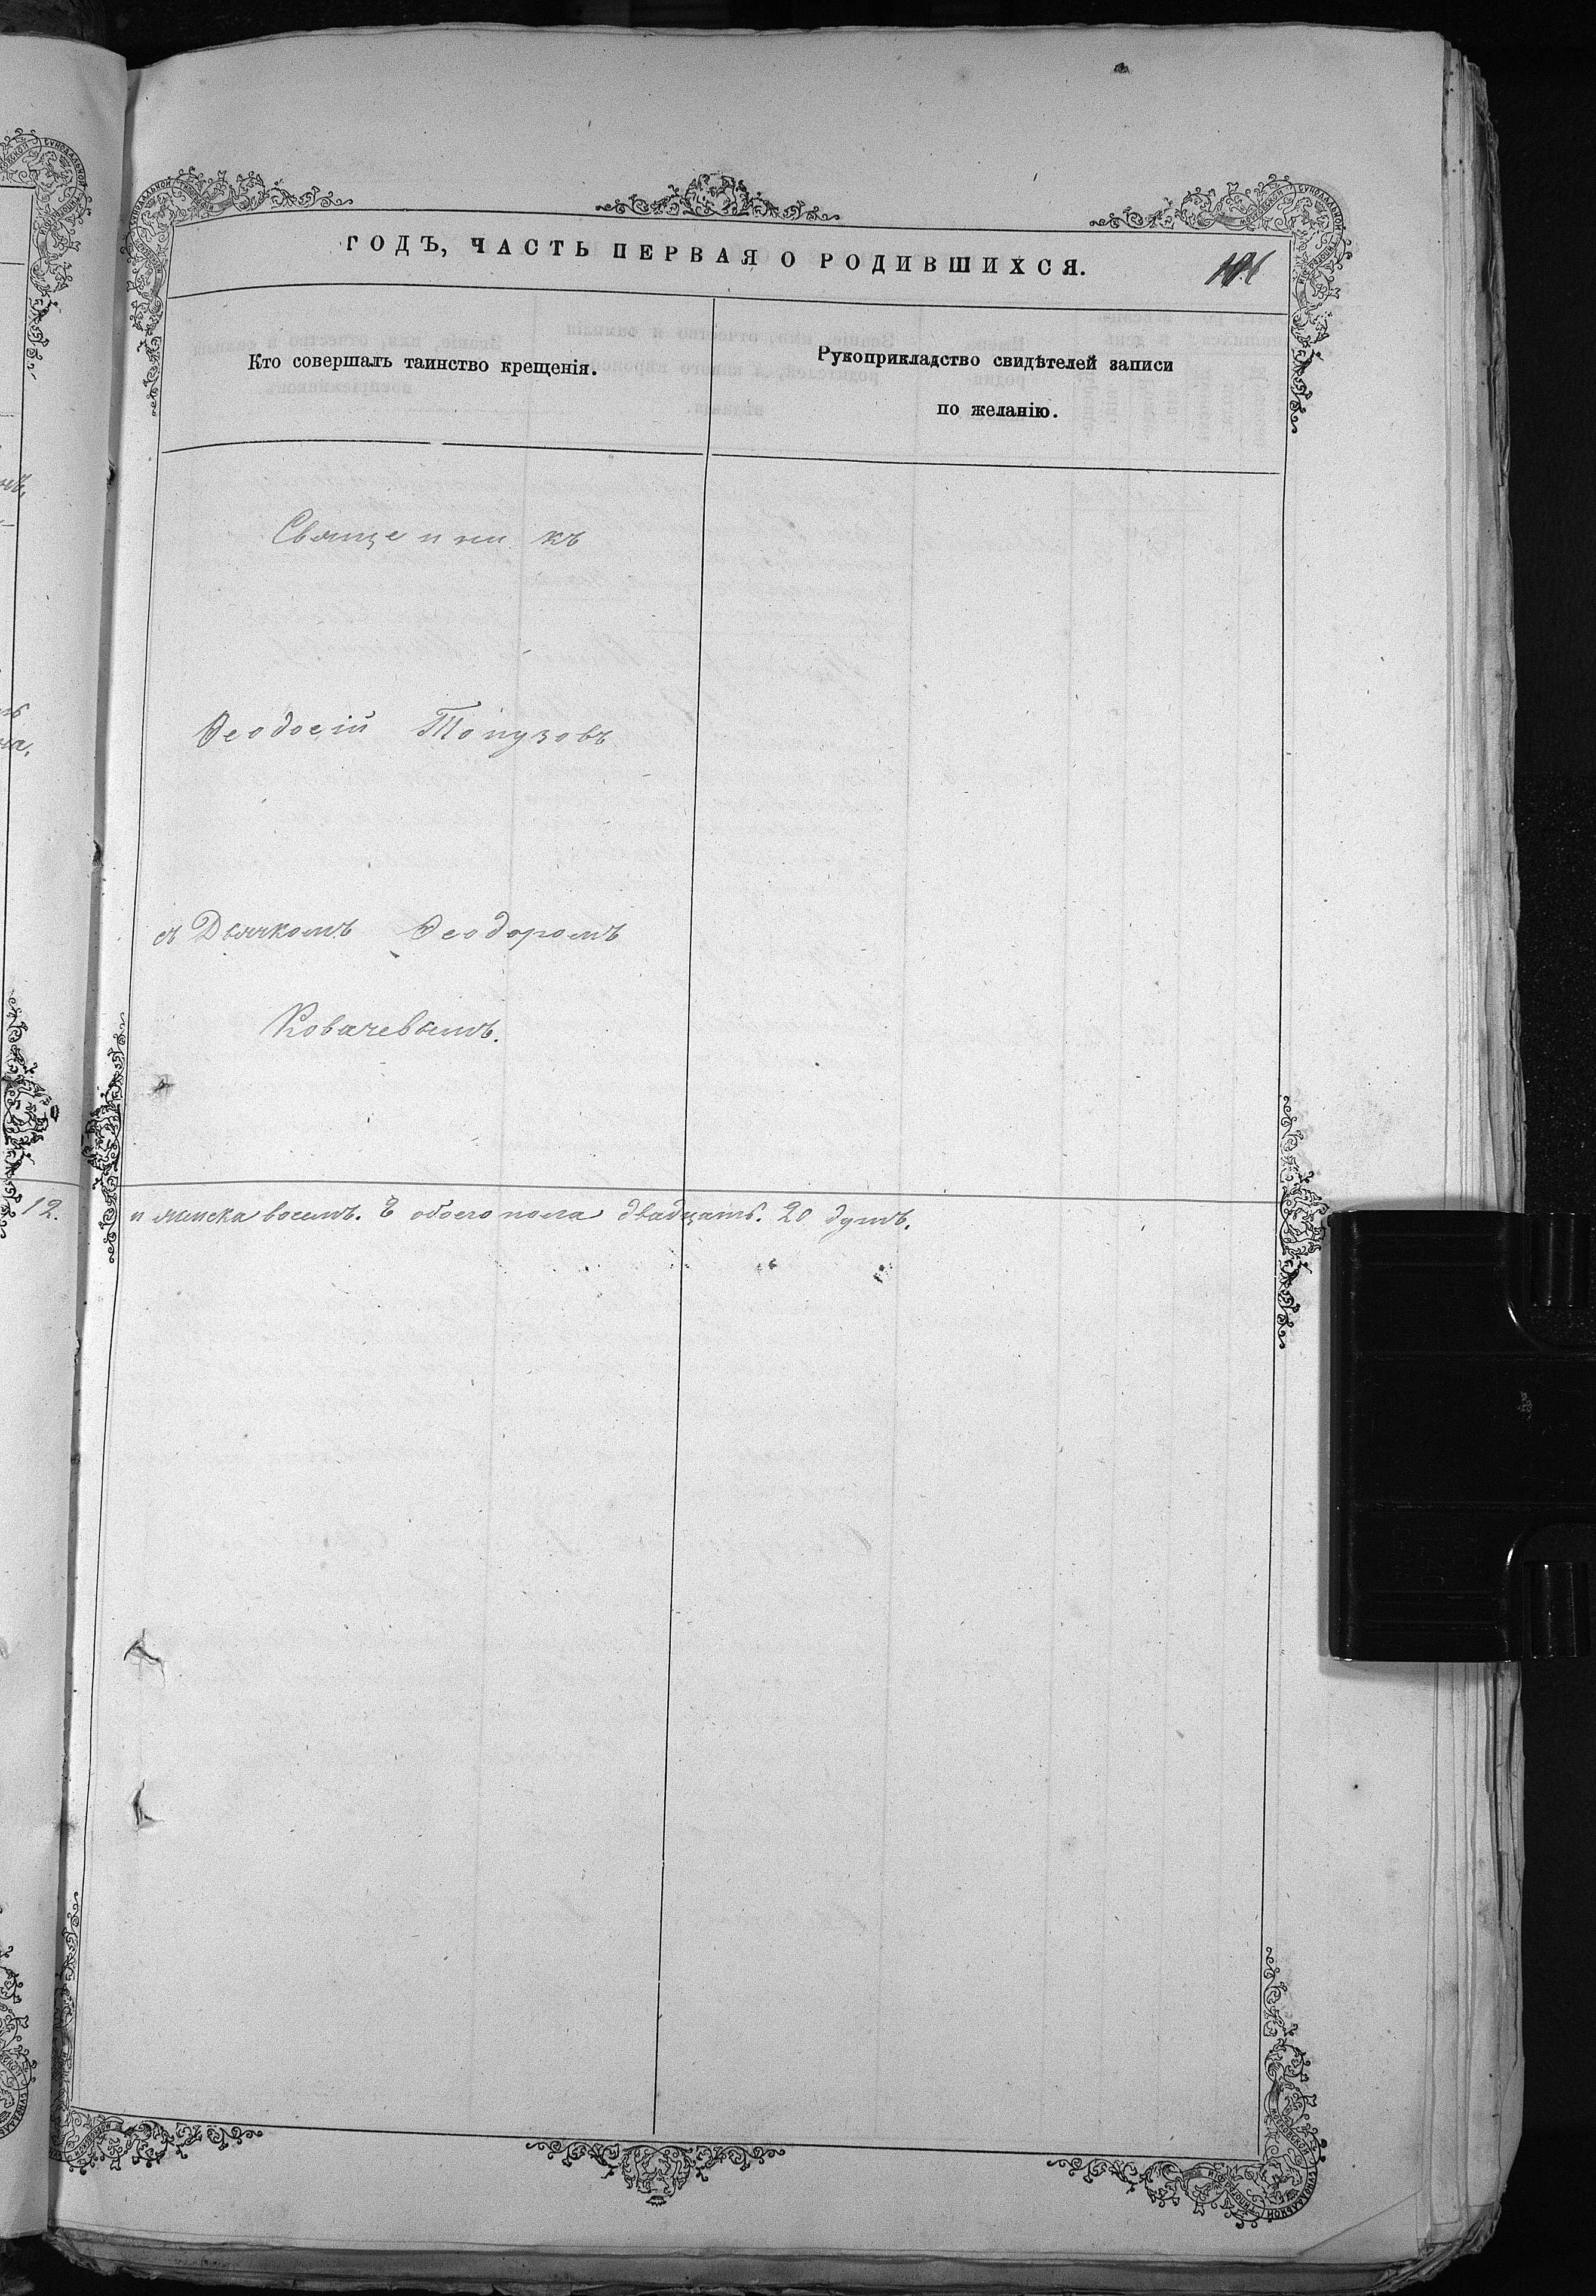 ГОДЪ, ЧАСТЬ ПЕРВАЯ О РОДИВШИХСЯ.
Кто совершалъ таинство крещенія.
Рукоприкладство свидѣтелей записи
по желанію.
Священникъ
Ѳеодосій Топузовъ
съ Дьячкомъ Ѳеодоромъ
Ковачевымъ.
12. и женска восемь. 8 обоего пола двадцать. 20 душъ.